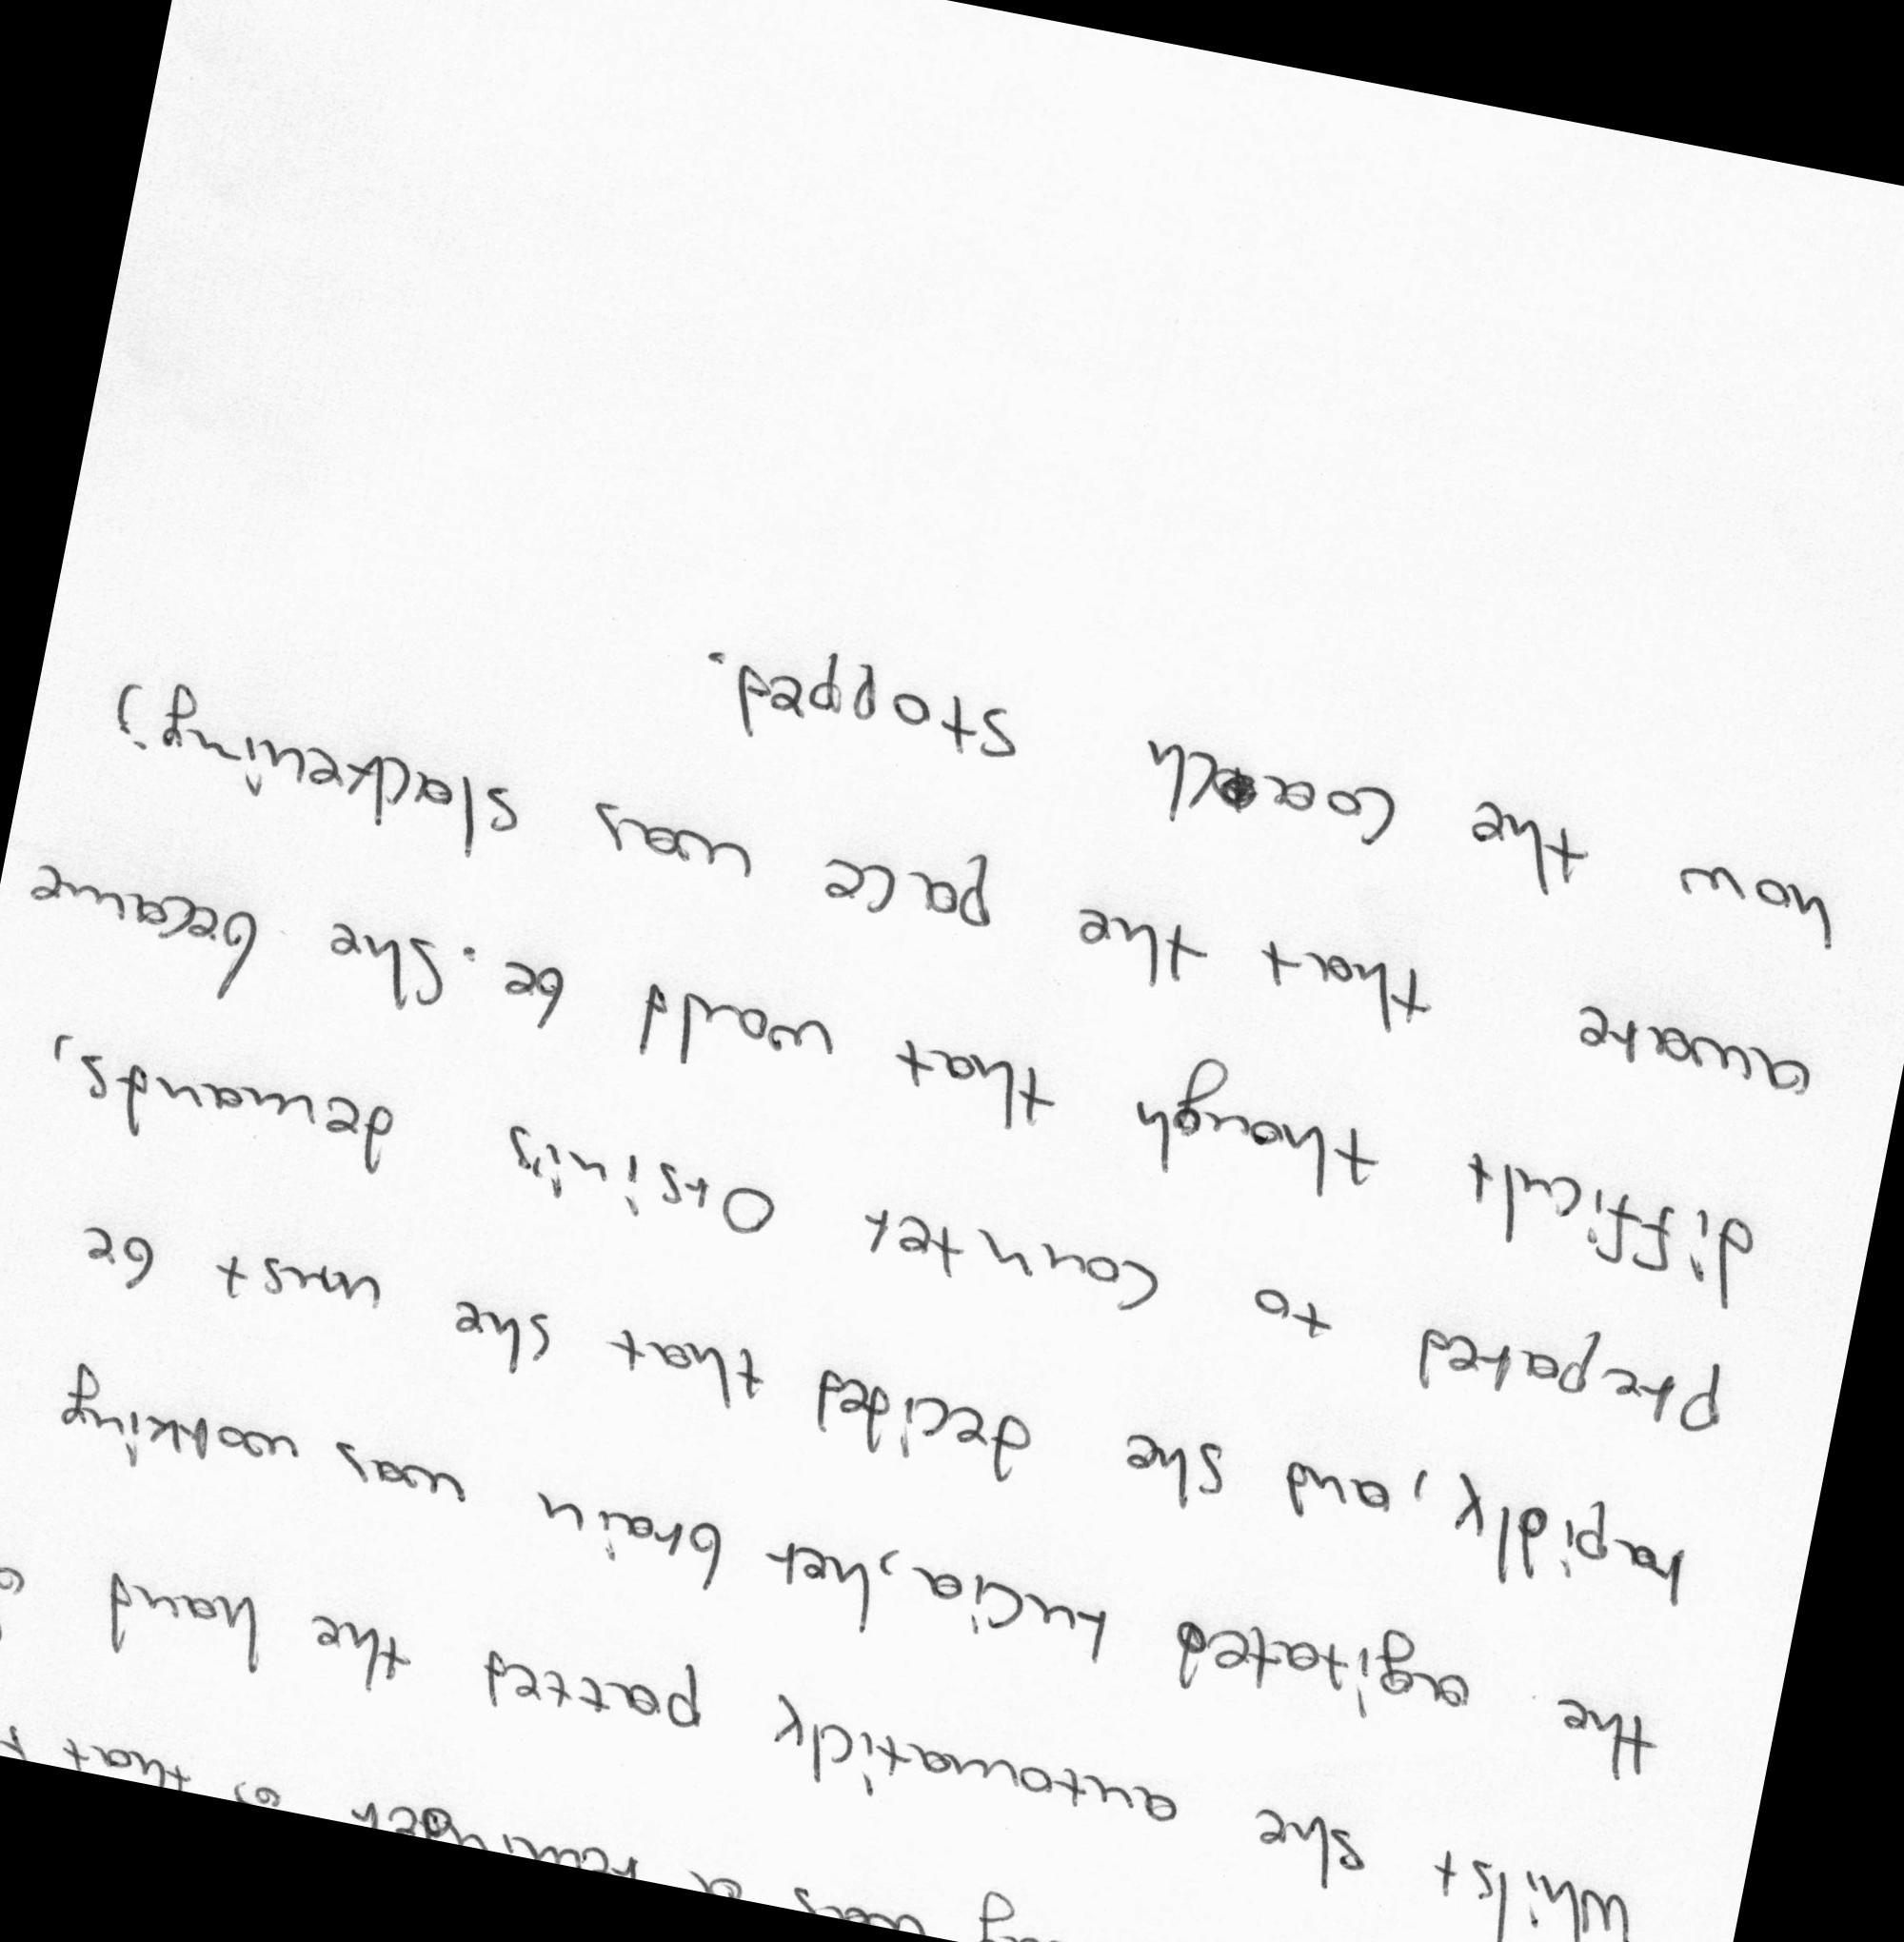 was a reminder of that
whilst she automaticly patted the hand
the agitated Lucia, her brain was working
rapidly, and she decided that she must be
prepared to counter Orsini's demands,
difficult though that would be. She became
aware that the pace was slackening;
now the coach stopped.